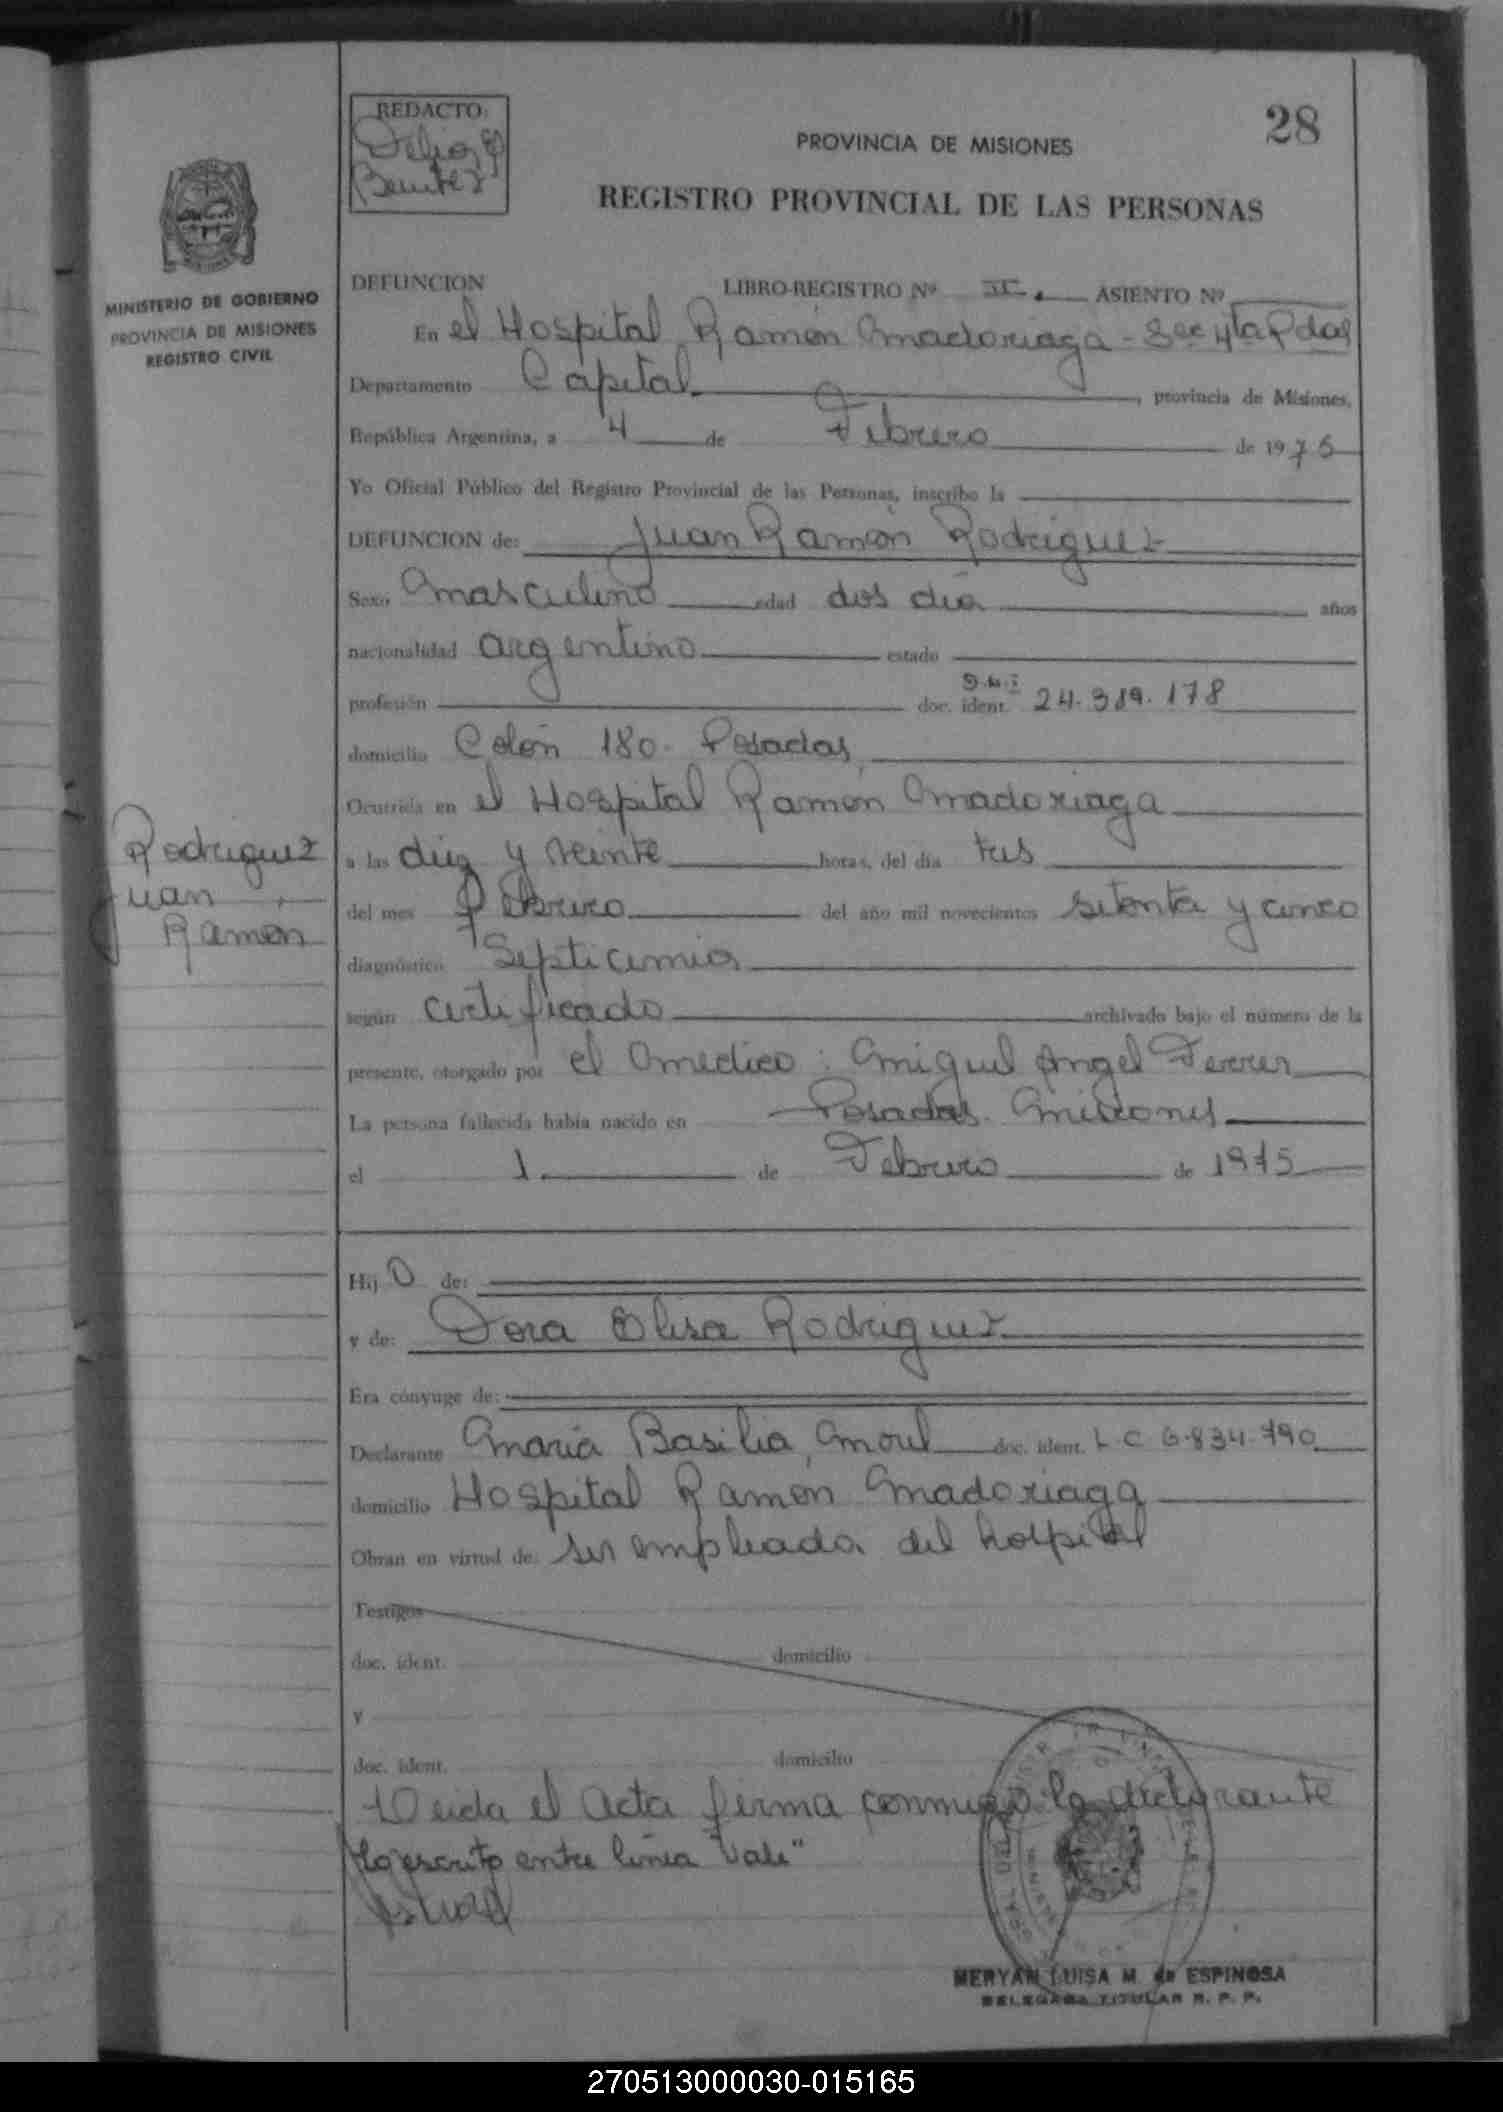 REDACTO:
Benitez
28
PROVINCIA DE MISIONES
REGISTRO PROVINCIAL DE LAS PERSONAS
MINISTERIO DE GOBIERNO
PROVINCIA DE MISIONES
REGISTRO CIVIL
DEFUNCION LIBRO-REGISTRO Nº II. ASIENTO Nº
En el Hospital Ramón Madoriaga - Sec 4ta Pdas
Departamento Capital, provincia de Misiones,
República Argentina, a 4 de Febrero de 1975
Yo Oficial Público del Registro Provincial de las Personas, inscribo la
DEFUNCION de: Juan Ramón Rodriguez
Sexo Masculino edad dos dia años
nacionalidad argentino estado
profesión doc. ident. D.N.I 24.389.178
domicilio Colón 180. Posadas
Ocurrida en el Hospital Ramón Madoriaga
a las diez y veinte horas, del día tres
del mes Febrero del año mil novecientos setenta y cinco
diagnóstico Septicemia
según certificado archivado bajo el número de la
presente, otorgado por el Medico: Miguel Angel Ferrer
La persona fallecida había nacido en Posadas. Misiones
el 1 de Febrero de 1975
Rodriguez
Juan
Ramón
Hij O de:
y de: Dora Elisa Rodriguez
Era cónyuge de:
Declarante Maria Basilia Morel doc. ident. L.C 6.834.790
domicilio Hospital Ramón Madoriaga
Obran en virtud de: ser empleada del hospital
Testigos
doc. ident. domicilio
y
doc. ident. domicilio
Leida el acta firma conmigo la declarante
lo escrito entre linea "Vale"
MERYAN LUISA M. de ESPINOSA
DELEGADA TITULAR R. P. P.
270513000030-015165